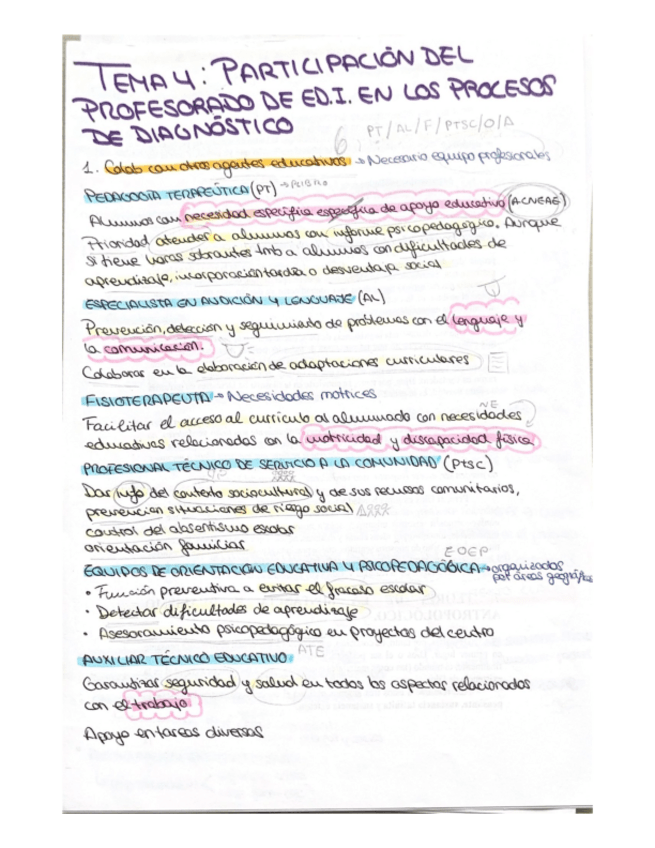 TEMA 4: PARTICIPACIÓN DEL
PROFESORADO DE ED.I. EN LOS PROCESOS
DE DIAGNÓSTICO
6 PT/AL/F/PTSC/O/A
1. Colab con otros agentes educativos → Necesario equipo profesionales
PEDAGOGÍA TERAPEÚTICA (PT)
Alumnos con necesidad específica específica de apoyo educativo (ACNEAE)
Prioridad atender a alumnos con informe psicopedagógico. Aunque
si tiene horas sobrantes tmb a alumnos con dificultades de
aprendizaje, incorporación tardía o desventaja social
ESPECIALISTA EN AUDICIÓN Y LENGUAJE (AL)
Prevención, detección y seguimiento de problemas con el lenguaje y
la comunicación.
Colaborar en la elaboración de adaptaciones curriculares
FISIOTERAPEUTA → Necesidades motrices
NE
Facilitar el acceso al currículo al alumnado con necesidades
educativas relacionadas con la motricidad y discapacidad física
PROFESIONAL TÉCNICO DE SERVICIO A LA COMUNIDAD (PTSC)
Dar info del contexto sociocultural y de sus recursos comunitarios,
prevención situaciones de riesgo social
control del absentismo escolar
orientación familiar
EOEP
EQUIPOS DE ORIENTACIÓN EDUCATIVA Y PSICOPEDAGÓGICA → organizados
por áreas geográficas
• Función preventiva a evitar el fracaso escolar
• Detectar dificultades de aprendizaje
• Asesoramiento psicopedagógico en proyectos del centro
AUXILIAR TÉCNICO EDUCATIVO ATE
Garantizar seguridad y salud en todos los aspectos relacionados
con el trabajo
Apoyo en tareas diversas